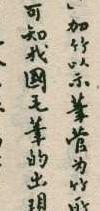 加竹以示筆管为竹所
可知我國毛筆的出現